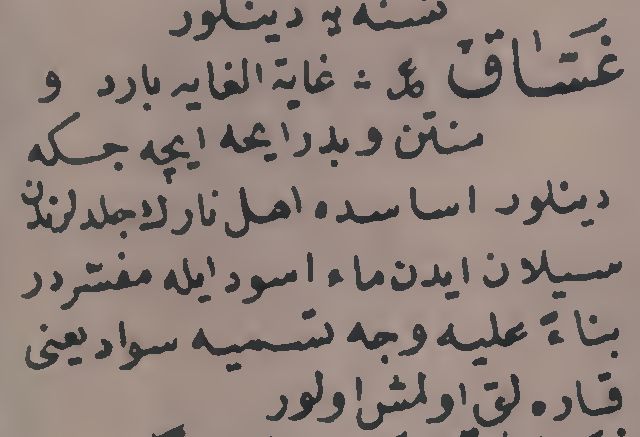 نسنه یه دینلور
غَسَّاق غایة الغایه بارد و
منتن و بدرایحه ایچه جسکه
دینلور اساسده اهل نارك جلدلرندن
سیلان ایدن ماء اسود ایله مفسّردر
بناءً علیه وجه تسمیه سواد یعنی
قاره لق اولمش اولور